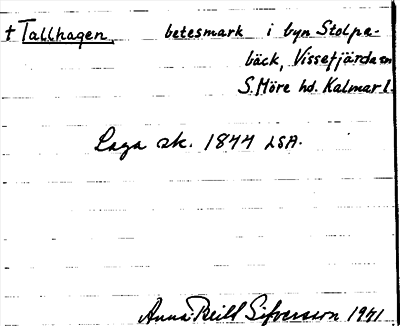 + Tallhagen betesmark i byn Stolpe-
bäck, Vissefjärda sn
S. Möre hd. Kalmar l.
Laga sk. 1844 LSA.
Anna-Britt Sifversson 1941